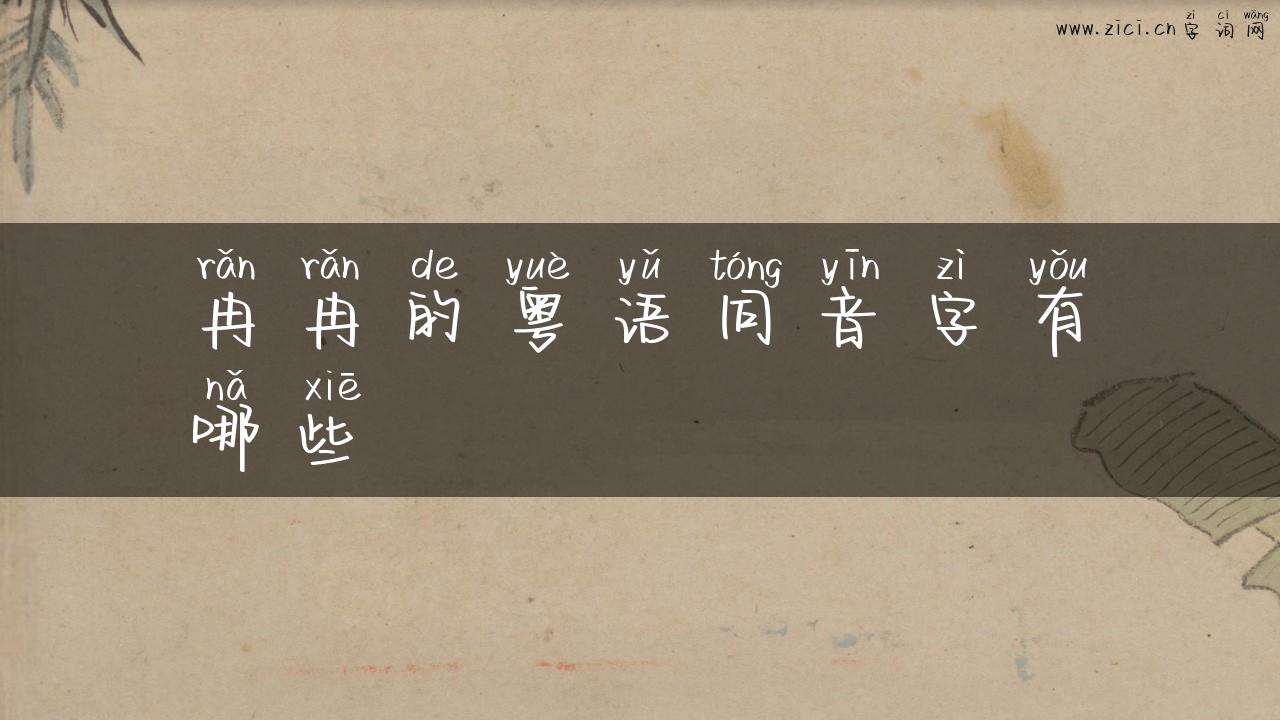 zì cí wǎng
www.zici.cn 字 词 网
rǎn rǎn de yuè yǔ tóng yīn zì yǒu
冉 冉 的 粤 语 同 音 字 有
nǎ xiē
哪 些